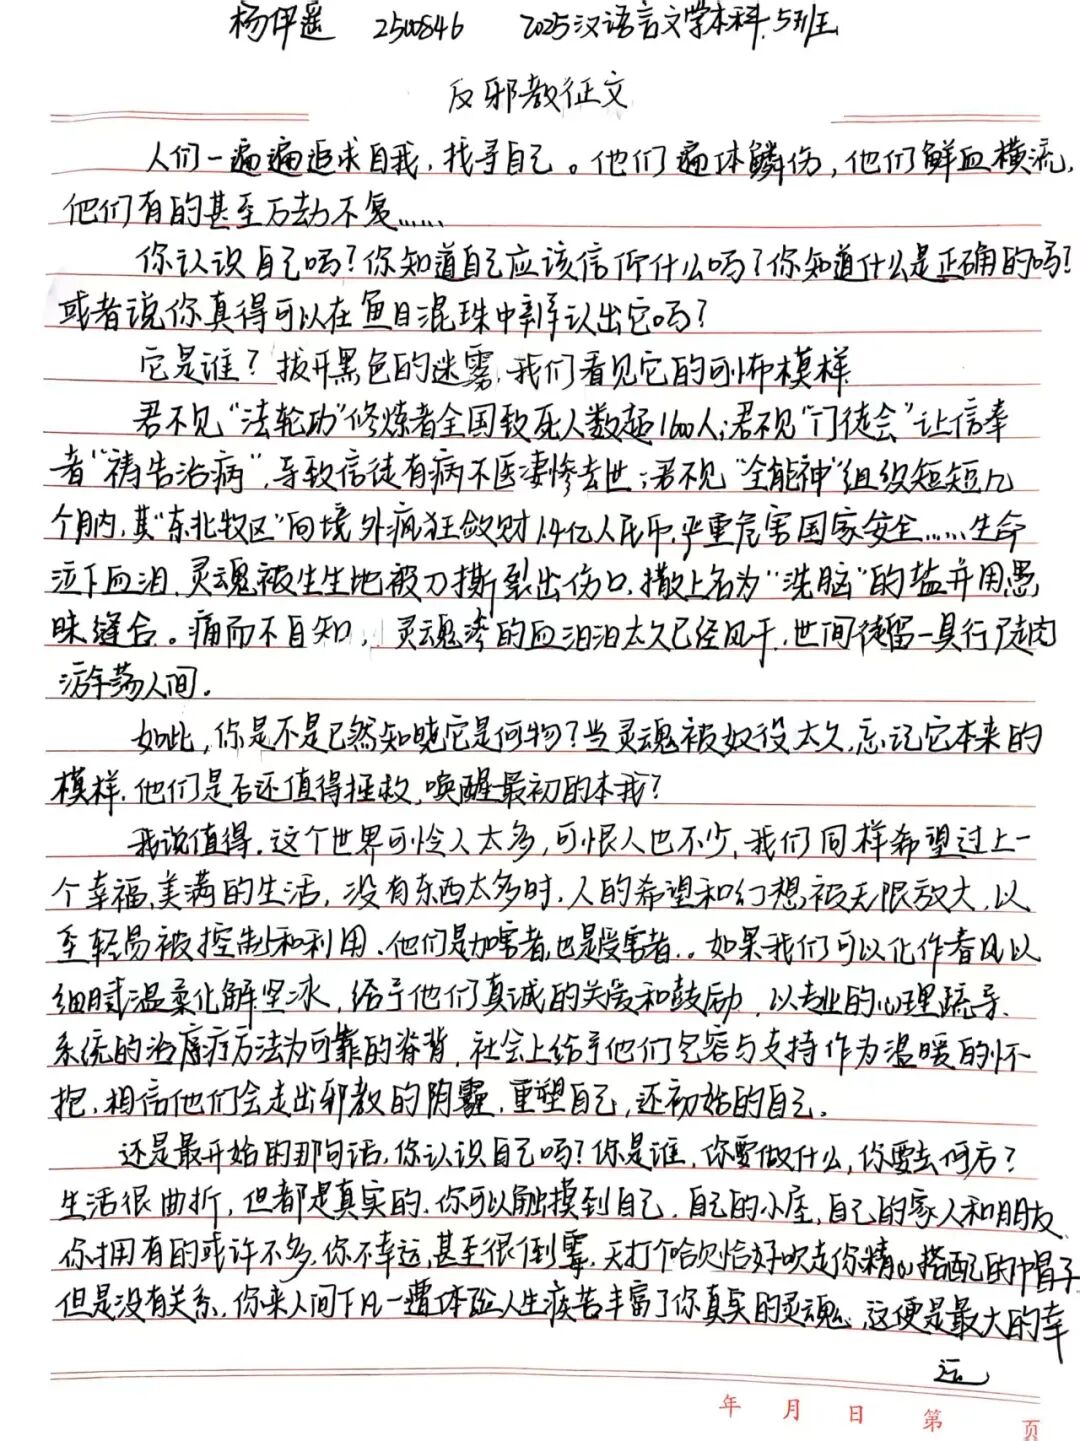 杨伊遥 2500846 2025汉语言文学本科5班
反邪教征文
人们一遍遍追求自我,找寻自己。他们遍体鳞伤,他们鲜血横流,
他们有的甚至万劫不复……
你认识自己吗?你知道自己应该信仰什么吗?你知道什么是正确的吗?
或者说你真得可以在鱼目混珠中辨认出它吗?
它是谁?拔开黑色的迷雾,我们看见它的可怖模样
君不见“法轮功”修炼者全国致死人数超1600人;君不见“门徒会”让信奉
者“祷告治病”,导致信徒有病不医凄惨去世;君不见“全能神”组织短短几
个月内,其“东北牧区”向境外疯狂敛财1.4亿人民币,严重危害国家安全……生命
泣下血泪,灵魂被生生地被刀撕裂出伤口,撒上名为“洗脑”的盐并用愚
昧缝合。痛而不自知,灵魂淌的血泪太久已经风干,世间徒留一具行尸走肉
游荡人间。
如此,你是不是已然知晓它是何物?当灵魂被奴役太久,忘记它本来的
模样,他们是否还值得拯救,唤醒最初的本我?
我说值得,这个世界可怜人太多,可恨人也不少,我们同样希望过上一
个幸福、美满的生活,没有东西太多时,人的希望和幻想被无限放大,以
至轻易被控制和利用,他们是加害者,也是受害者。如果我们可以化作春风以
细腻温柔化解坚冰,给予他们真诚的关爱和鼓励,以专业的心理疏导、
系统的治疗方法为可靠的脊背,社会上给予他们包容与支持作为温暖的怀
抱,相信他们会走出邪教的阴霾,重塑自己,还初始的自己。
还是最开始的那句话,你认识自己吗?你是谁,你要做什么,你要去何方?
生活很曲折,但都是真实的,你可以触摸到自己,自己的小屋,自己的家人和朋友,
你拥有的或许不多,你不幸运,甚至很倒霉,天打个哈欠恰好吹走你精心搭配的帽子
但是没有关系,你来人间下凡一遭体验人生疾苦丰富了你真实的灵魂,这便是最大的幸
运
年 月 日 第 页